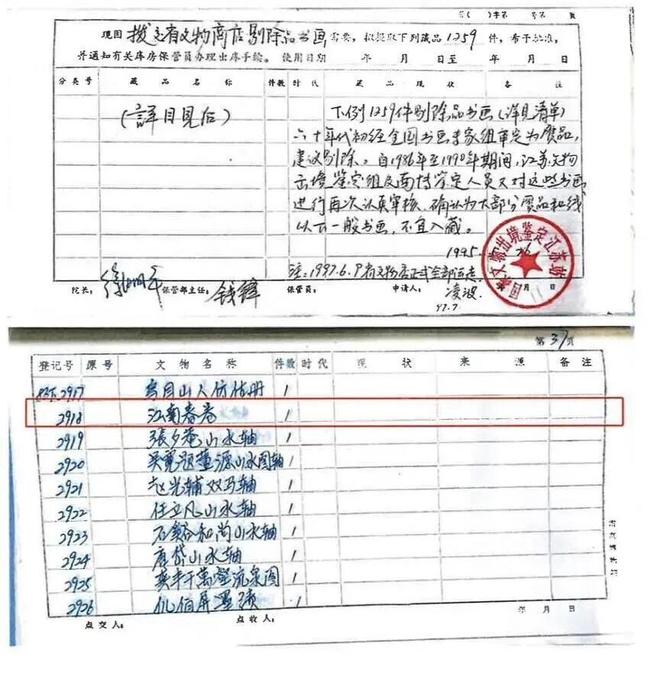 字第 号 年 月 日
现因 拨交省文物商店剔除品书画 需要，拟提取下列藏品 1259 件，希予批准，
并通知有关库房保管员办理出库手续。使用日期 年 月 日至 年 月 日
分类号 藏品名称 件数 时代 藏品现状 备注
(詳目見后)
下例1259件剔除品书画(详见清单)
六十年代初经全国书画专家组审定为赝品，
建议剔除。自1986年至1990年期间，江苏文物
出境鉴定组及南博鉴定人员又对这些书画
进行再次认真审核，确认为大部分赝品和线
以下一般书画，不宜入藏。
1995.
注：1997.6.9省文物店正式全部运走
院长： 保管部主任：钱锋 保管员： 申请人：凌波
97.7
国家文物出境鉴定江苏站
第 37 页
登记号 原号 文物名称 件数 时代 现状 来源 备注
2917 山人仿 册 1
2918 江南春卷 1
2919 張夕菴山水轴 1
2920 吴寬题董源山水图轴 1
2921 赵光辅双马轴 1
2922 任立凡山水轴 1
2923 石谿和尚山水轴 1
2924 唐岱山水轴 1
2925 龚半千萬壑流泉图 1
2926 仉伯屏墨 1
点交人： 点收人： 年 月 日